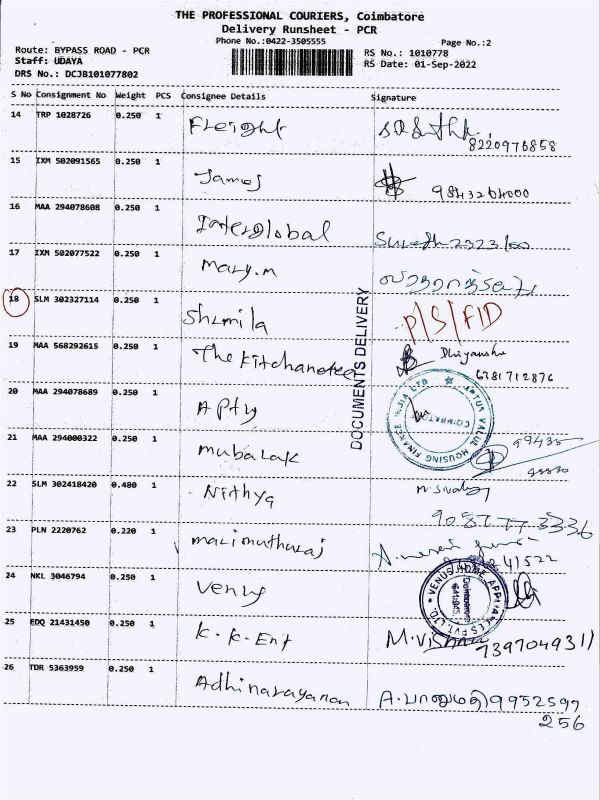 THE PROFESSIONAL COURIERS, Coimbatore
Delivery Runsheet - PCR
Phone No.:0422-3505555
Page No.:2
Route: BYPASS ROAD - PCR
RS No.: 1010778
Staff: UDAYA
RS Date: 01-Sep-2022
DRS No.: DCJB101077802
S No Consignment No Weight PCS Consignee Details Signature
14 TRP 1028726 0.250 1 Freight
8220976858
15 IXM 502091565 0.250 1 James 9843264000
16 MAA 294078608 0.250 1 Interglobal
17 IXM 502077522 0.250 1 Mary.m
18 SLM 302327114 0.250 1 Shimila P/S/FID
19 MAA 568292615 0.250 1 The Kitchanetee
6381712876
DOCUMENTS DELIVERY
20 MAA 294078689 0.250 1 Apty
APTUS VALUE HOUSING FINANCE INDIA LTD
COIMBATORE
21 MAA 294000322 0.250 1 Mubarak 99435
22 SLM 302418420 0.480 1 Nithya
9087773336
23 PLN 2220762 0.220 1 marimuthuraj
41522
24 NKL 3046794 0.250 1 Venus
VENUS HOME APPLIANCES PVT. LTD.
Coimbatore
25 EDQ 21431450 0.250 1 K.K.Ent M.Vishnu
7397049311
26 TDR 5363959 0.250 1 Adhinarayanan A.பானுமதி 9952597
256